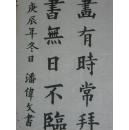 畫有時常拜
書無日不臨
庚辰年冬日 潘偉文書